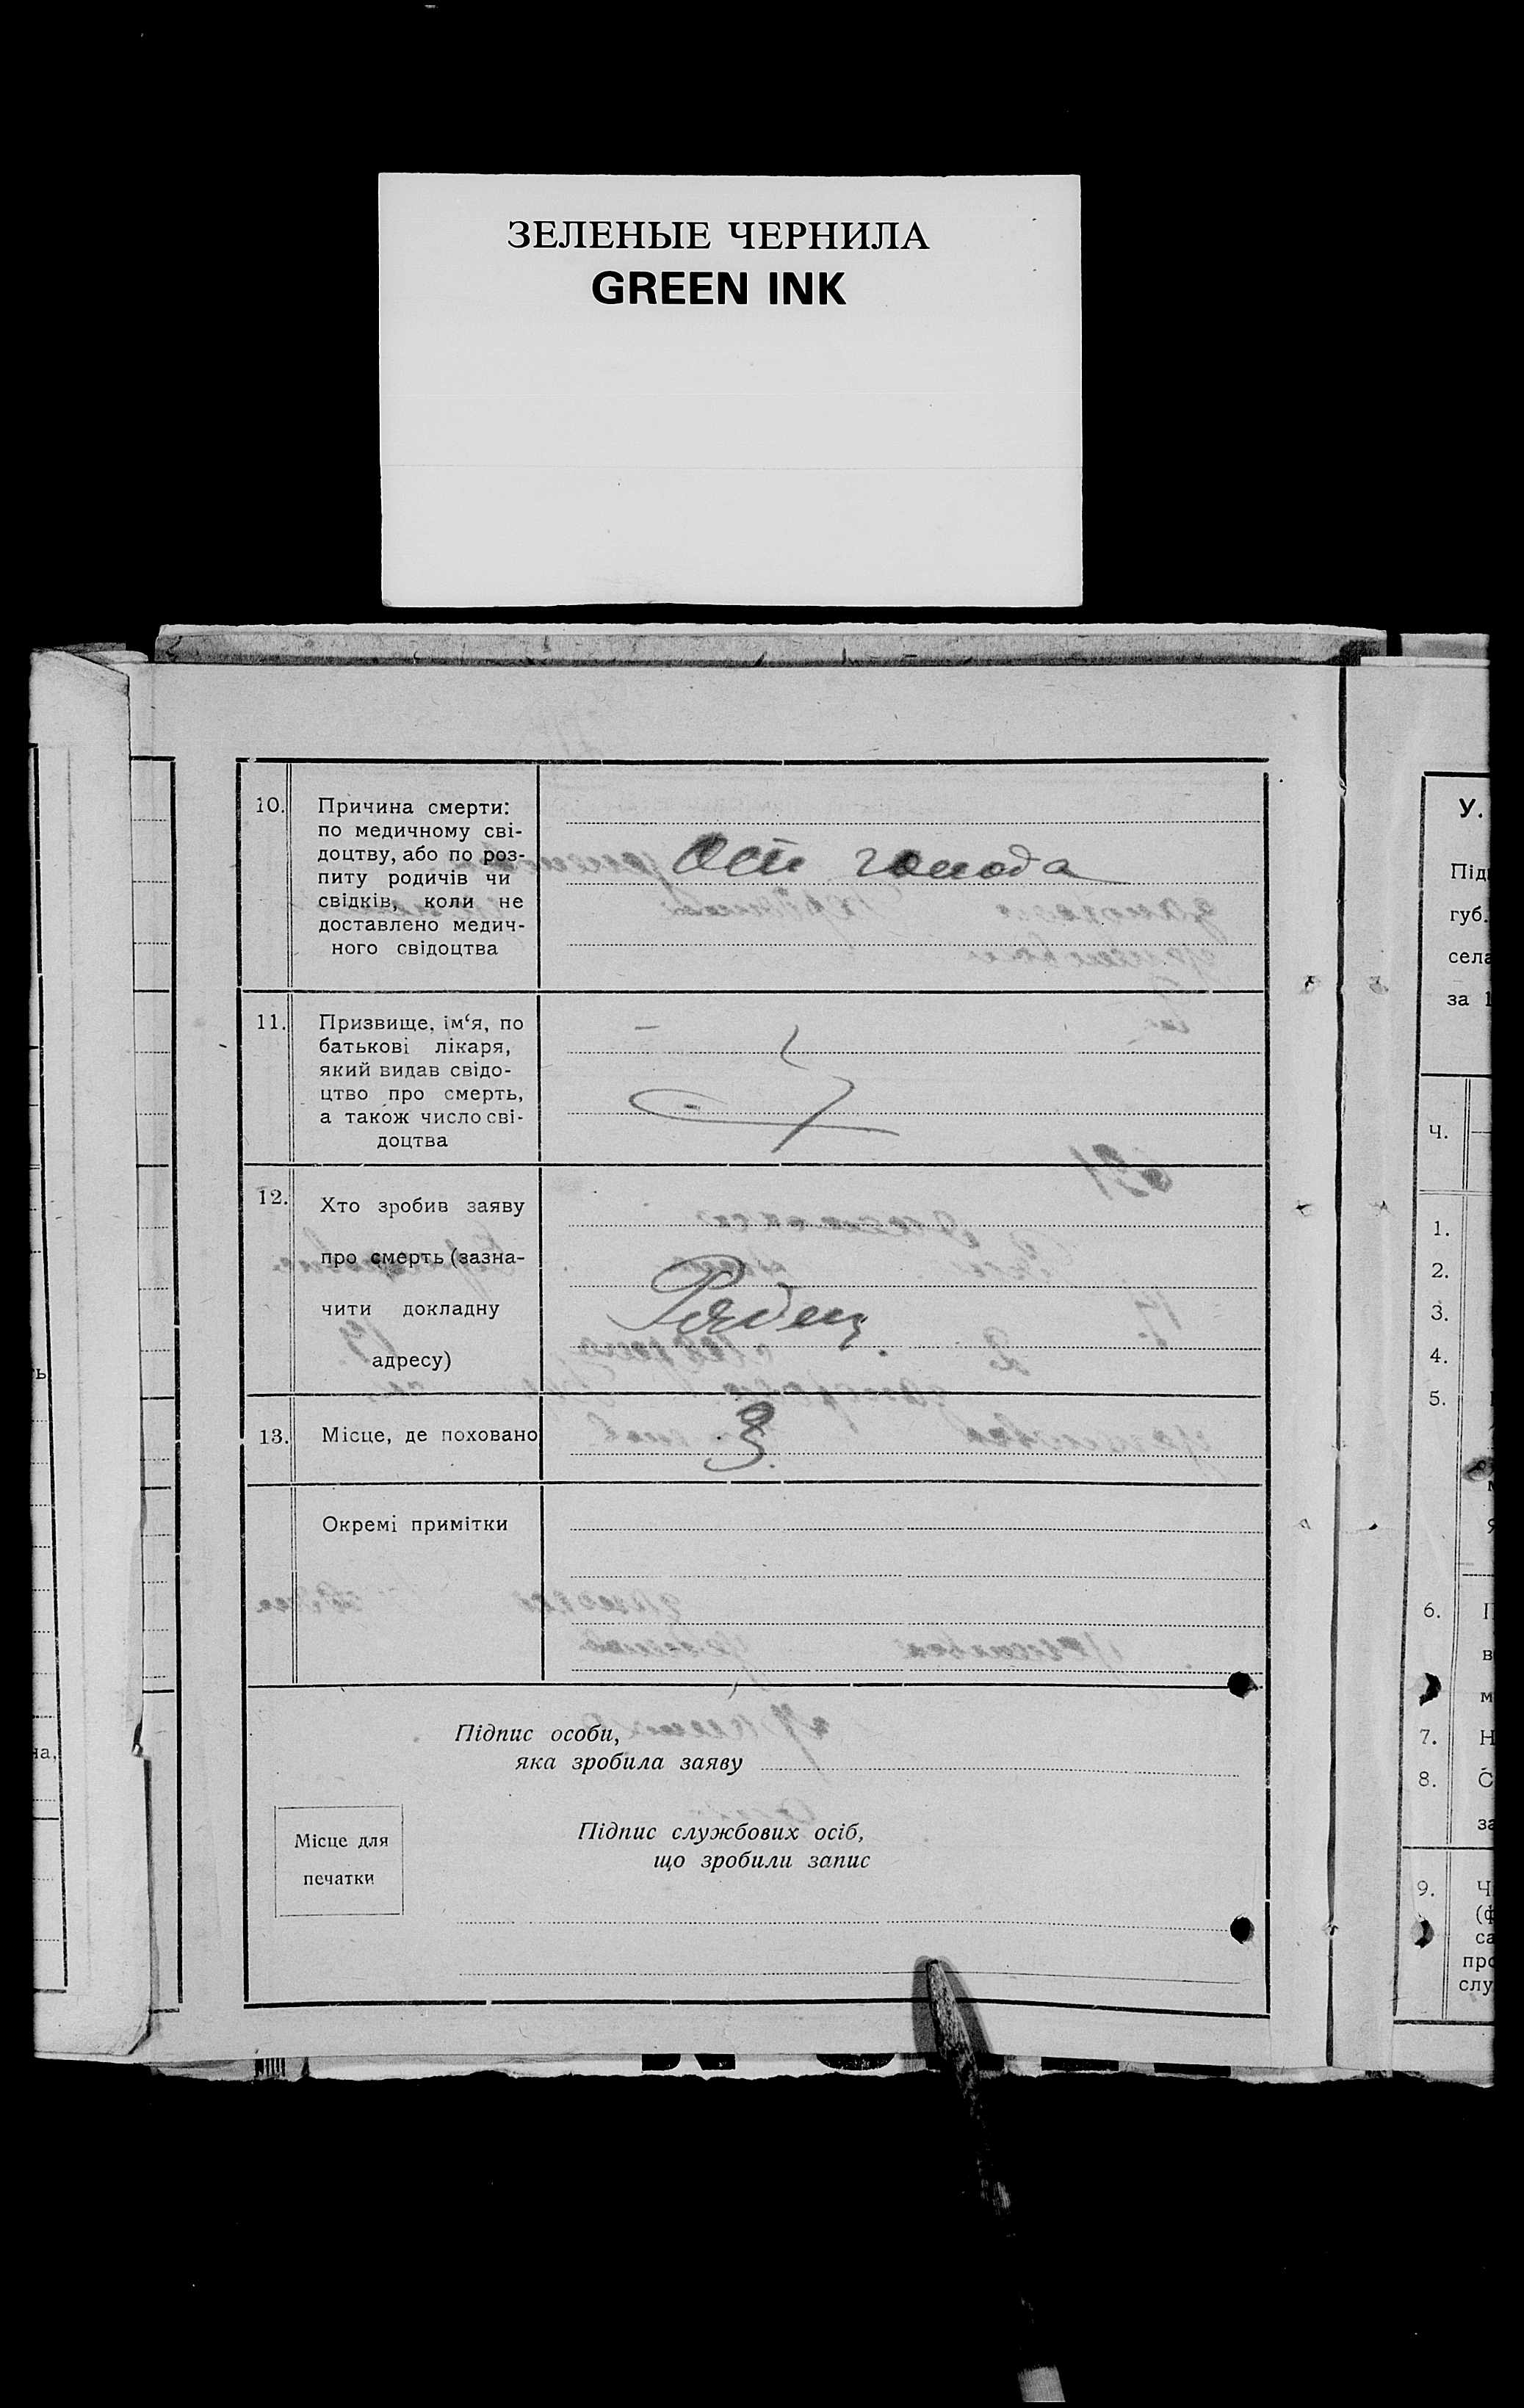 ЗЕЛЕНЫЕ ЧЕРНИЛА
GREEN INK
10. Причина смерти:
по медичному сві-
доцтву, або по роз-
питу родичів чи
свідків, коли не
доставлено медич-
ного свідоцтва
От голода
11. Призвище, ім‘я, по
батькові лікаря,
який видав свідо-
цтво про смерть,
а також число сві-
доцтва
12. Хто зробив заяву
про смерть (зазна-
чити докладну
адресу)
13. Місце, де поховано
Окремі примітки
Підпис особи,
яка зробила заяву
Місце для
печатки
Підпис службових осіб,
що зробили запис
У.
губ.
села
за 1
Ч.
1.
2.
3.
4.
5.
6.
7.
8.
9.